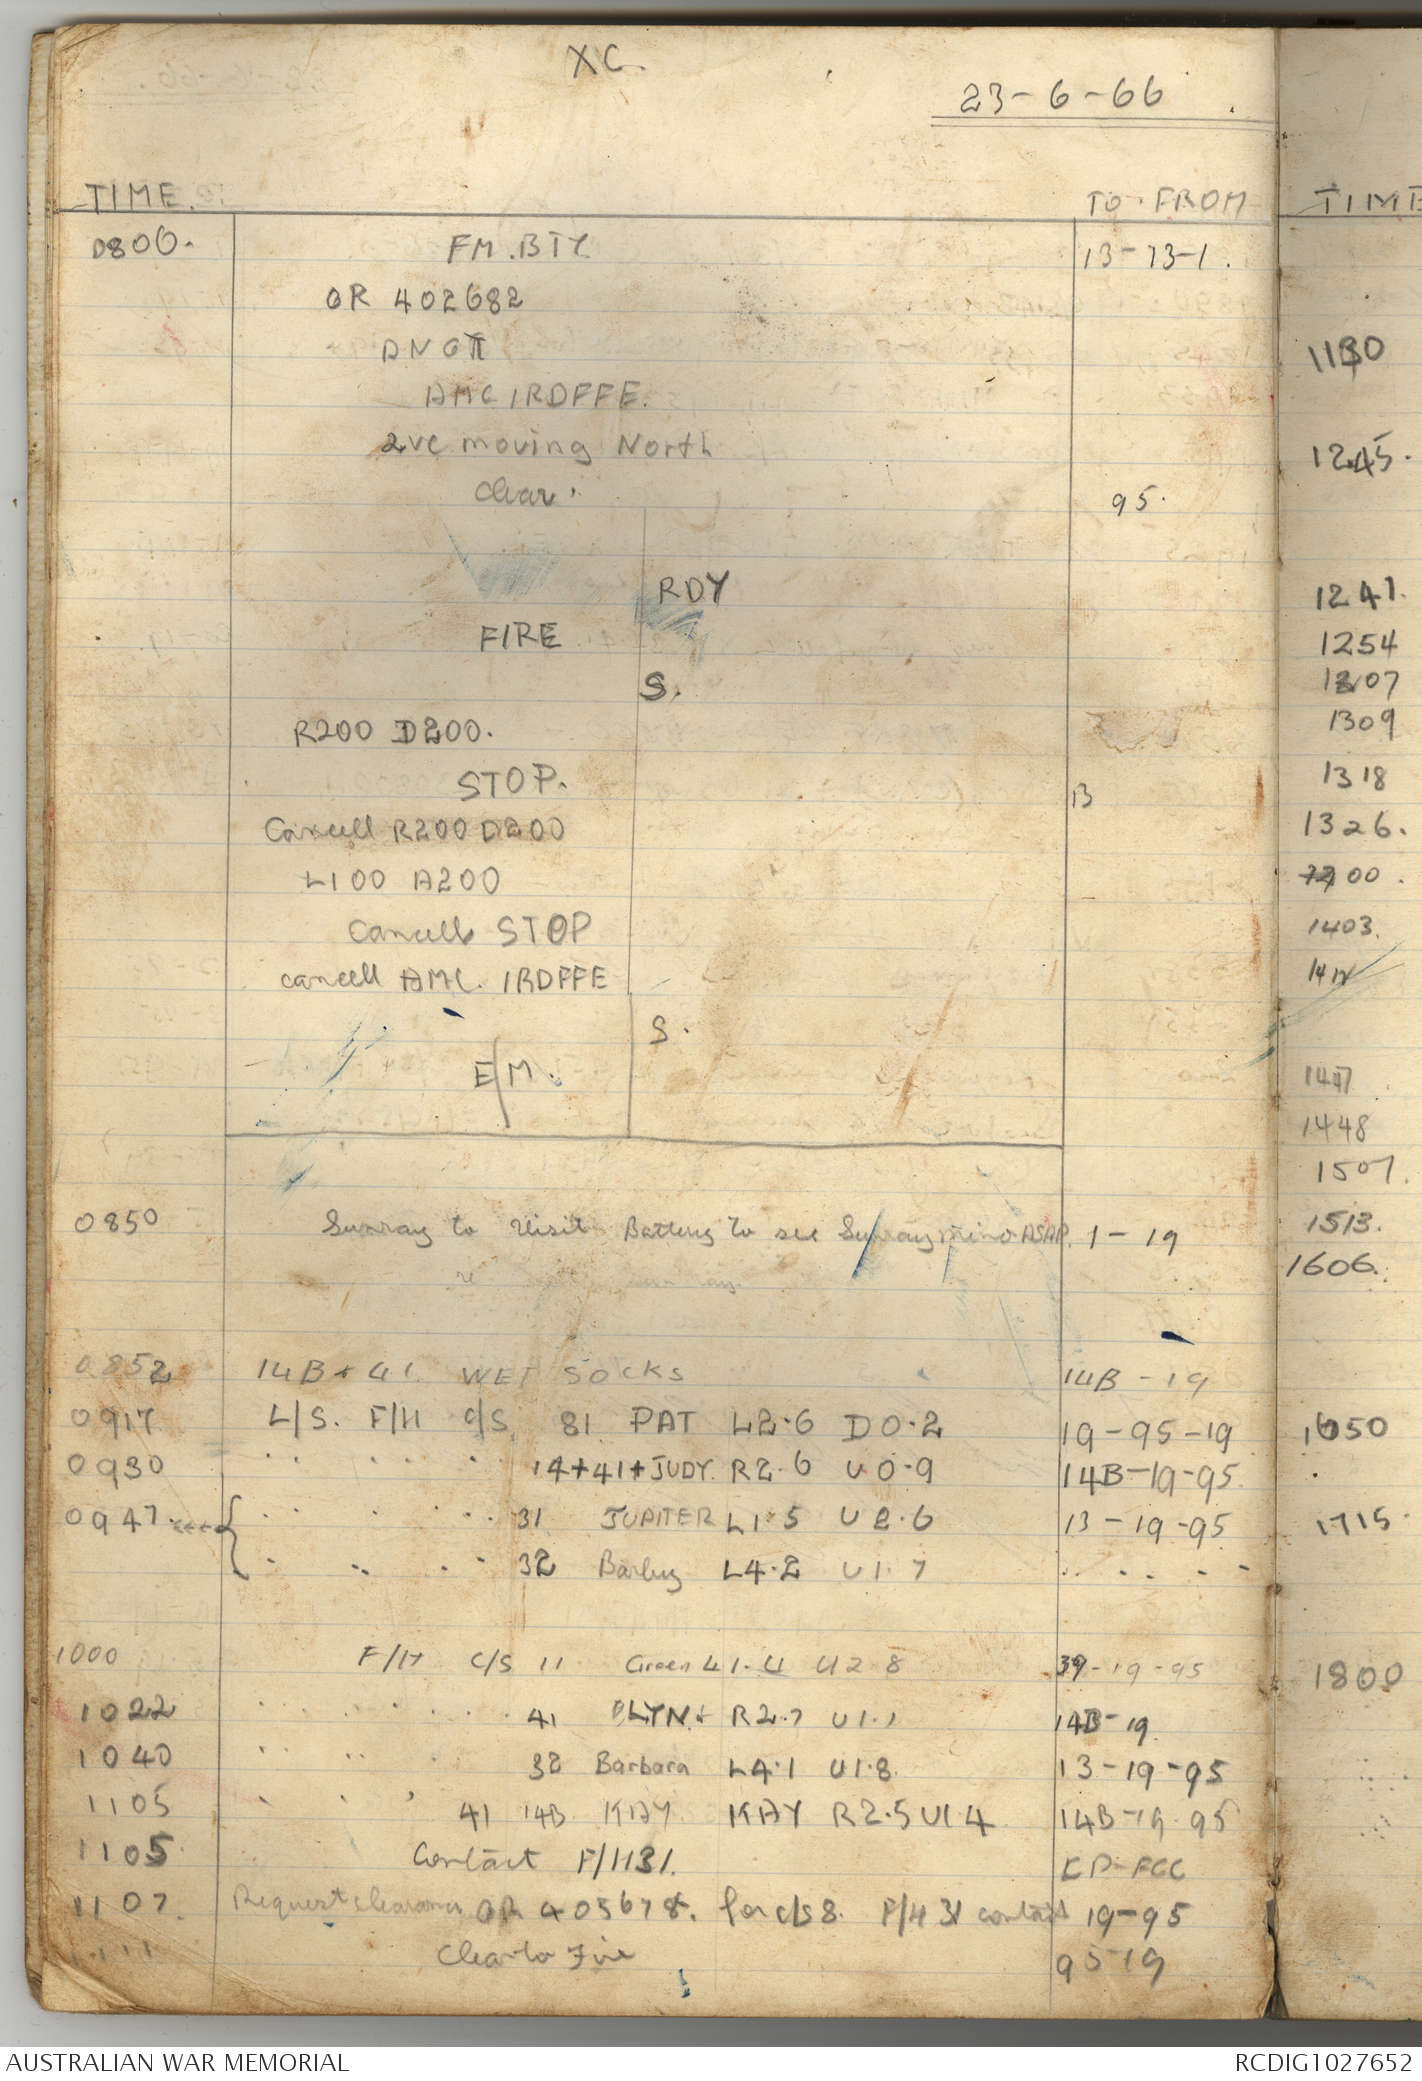 XC.
23-6-66
TIME. TO. FROM
0806. FM. BTY. 13-73-1.
GR 402682
DNGT
AMC 1RDFFE.
2VC moving North
Clear. 95.
RDY
FIRE
S.
R200 D200.
STOP. B
Cancell R200 D200
L100 A200
Cancell STOP
cancell AMC. 1RDFFE
S.
E/M.
0850 Sunray to visit Battery to see Sunray mino ASAP. 1-19
0852 14B + 41 WET SOCKS 14B-19
0917 L/S. F/H C/S 81 PAT L2.6 D0.2 19-95-19
0930 " " " 14+41+JUDY. R2.6 U0.9 14B-19-95.
0947. " " " 31 JUPITER L1.5 U2.6 13-19-95
" " " 32 L4.2 U1.7 " " " "
1000 F/H C/S 11 Green L1.4 U2 8 39-19-95
1022 " " " 41 LYN+ R2.7 U1.1 14B-19.
1040 " " " 32 Barbara L4.1 U1.8. 13-19-95
1105 " " " 41 14B KAY KAY R2.5 U1 4 14B-19 95
1105. Contact F/H31. CP-FCC
1107. Request clearance GR 405678. for c/s 8. F/H 31 contact 19-95
1111 Clear to Fire 95-19
TIME
1130
1245.
1241.
1254
1307
1309
1318
1326.
00.
1403.
1447
1448
1507.
1513.
1606.
1650
1715.
1800
AUSTRALIAN WAR MEMORIAL RCDIG1027652